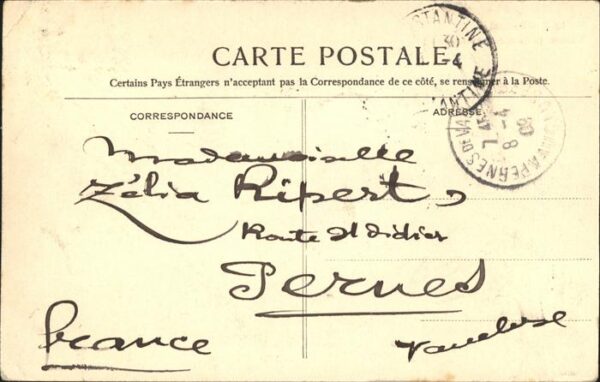 CARTE POSTALE
Certains Pays Étrangers n'acceptant pas la Correspondance de ce côté, se renseigner à la Poste.
CORRESPONDANCE
ADRESSE
Mademoiselle
Zélia Ripert
Route St Didier
Pernes
France
Vaucluse